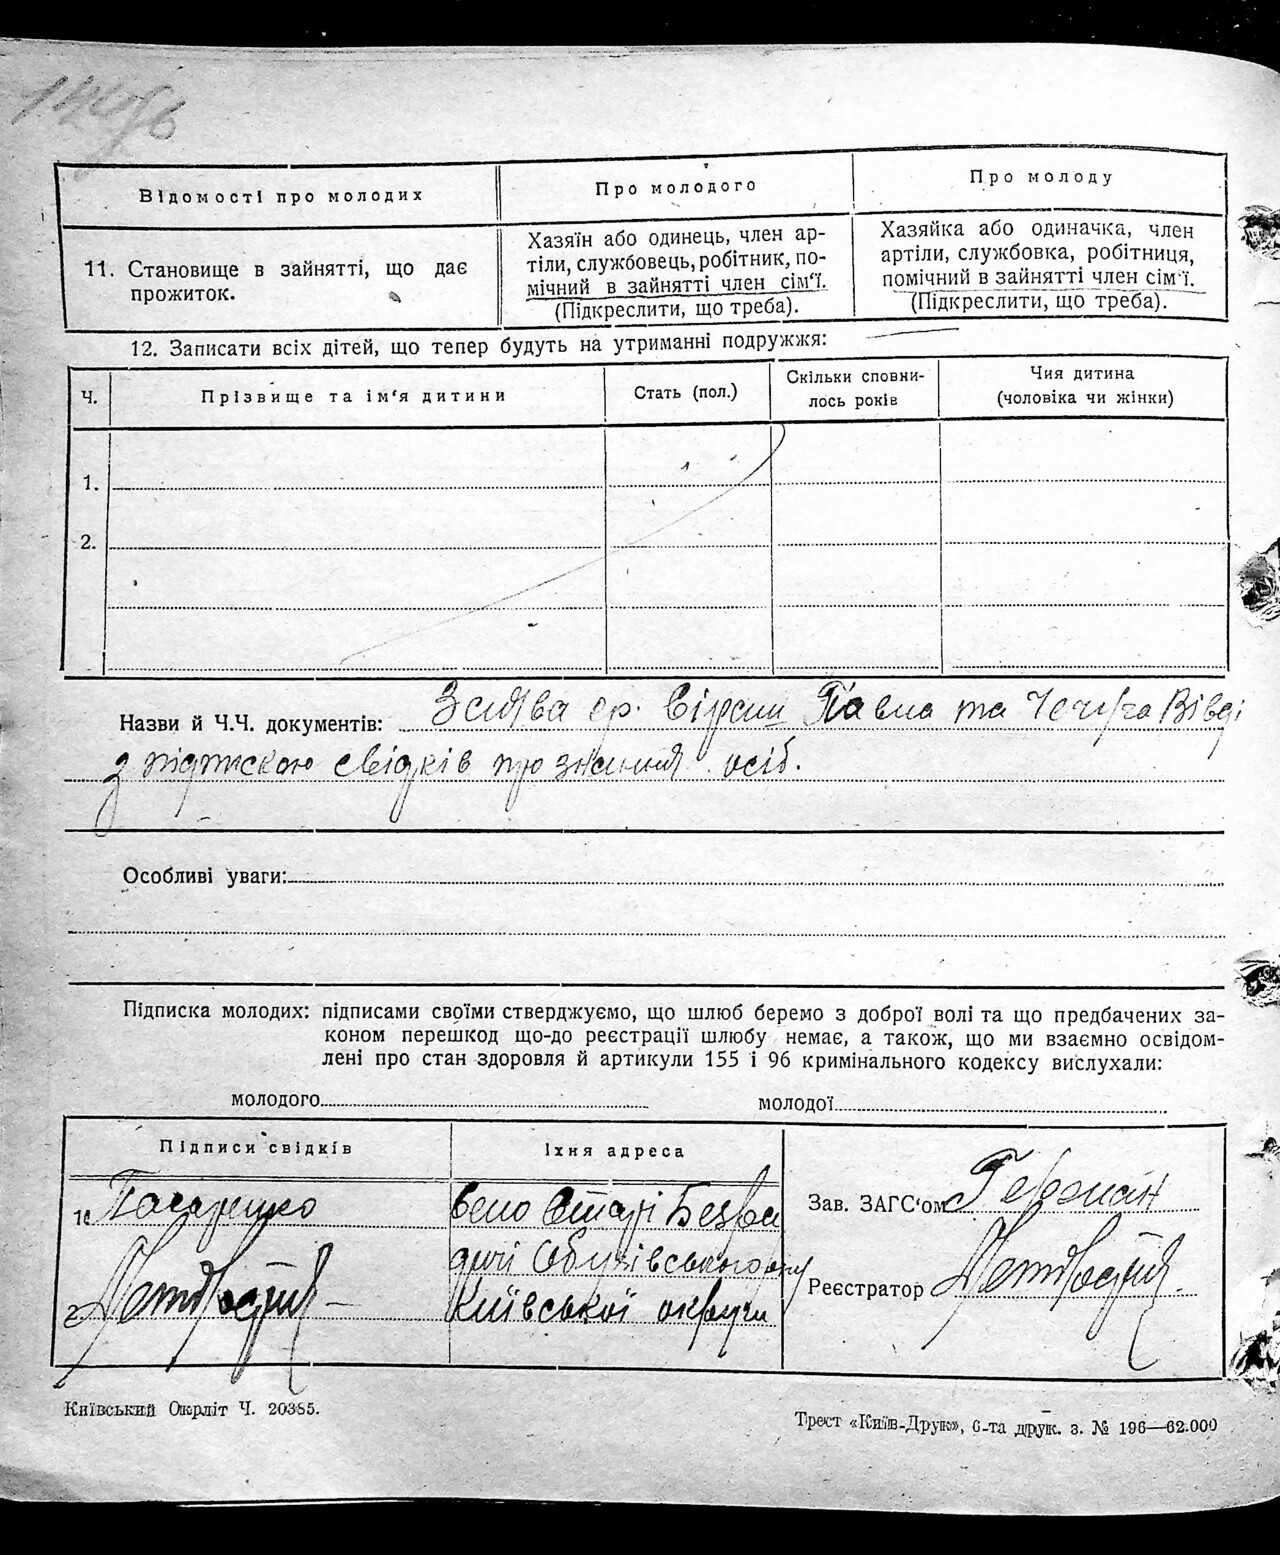 Відомості про молодих
Про молодого
Про молоду
11. Становище в зайнятті, що дає
прожиток.
Хазяїн або одинець, член ар-
тіли, службовець, робітник, по-
мічний в зайнятті член сім'ї.
(Підкреслити, що треба).
Хазяйка або одиначка, член
артіли, службовка, робітниця,
помічний в зайнятті член сім'ї.
(Підкреслити, що треба).
12. Записати всіх дітей, що тепер будуть на утриманні подружжя:
Ч.
Прізвище та ім'я дитини
Стать (пол.)
Скільки сповни-
лось років
Чия дитина
(чоловіка чи жінки)
1.
2.
Назви й Ч.Ч. документів: Заява гр. Павла та Вівді
з підпискою свідків про знання осіб.
Особливі уваги:
Підписка молодих: підписами своїми стверджуємо, що шлюб беремо з доброї волі та що предбачених за-
коном перешкод що-до реєстрації шлюбу немає, а також, що ми взаємно освідом-
лені про стан здоровля й артикули 155 і 96 кримінального кодексу вислухали:
молодого
молодої
Підписи свідків
Їхня адреса
1.
село Старі Безра
дичі Обухівського р-ну
2.
Київської округи
Зав. ЗАГС'ом Гербман
Реєстратор
Київський Окрліт Ч. 20385.
Трест «Київ-Друк», 6-та друк. з. № 196—62.000